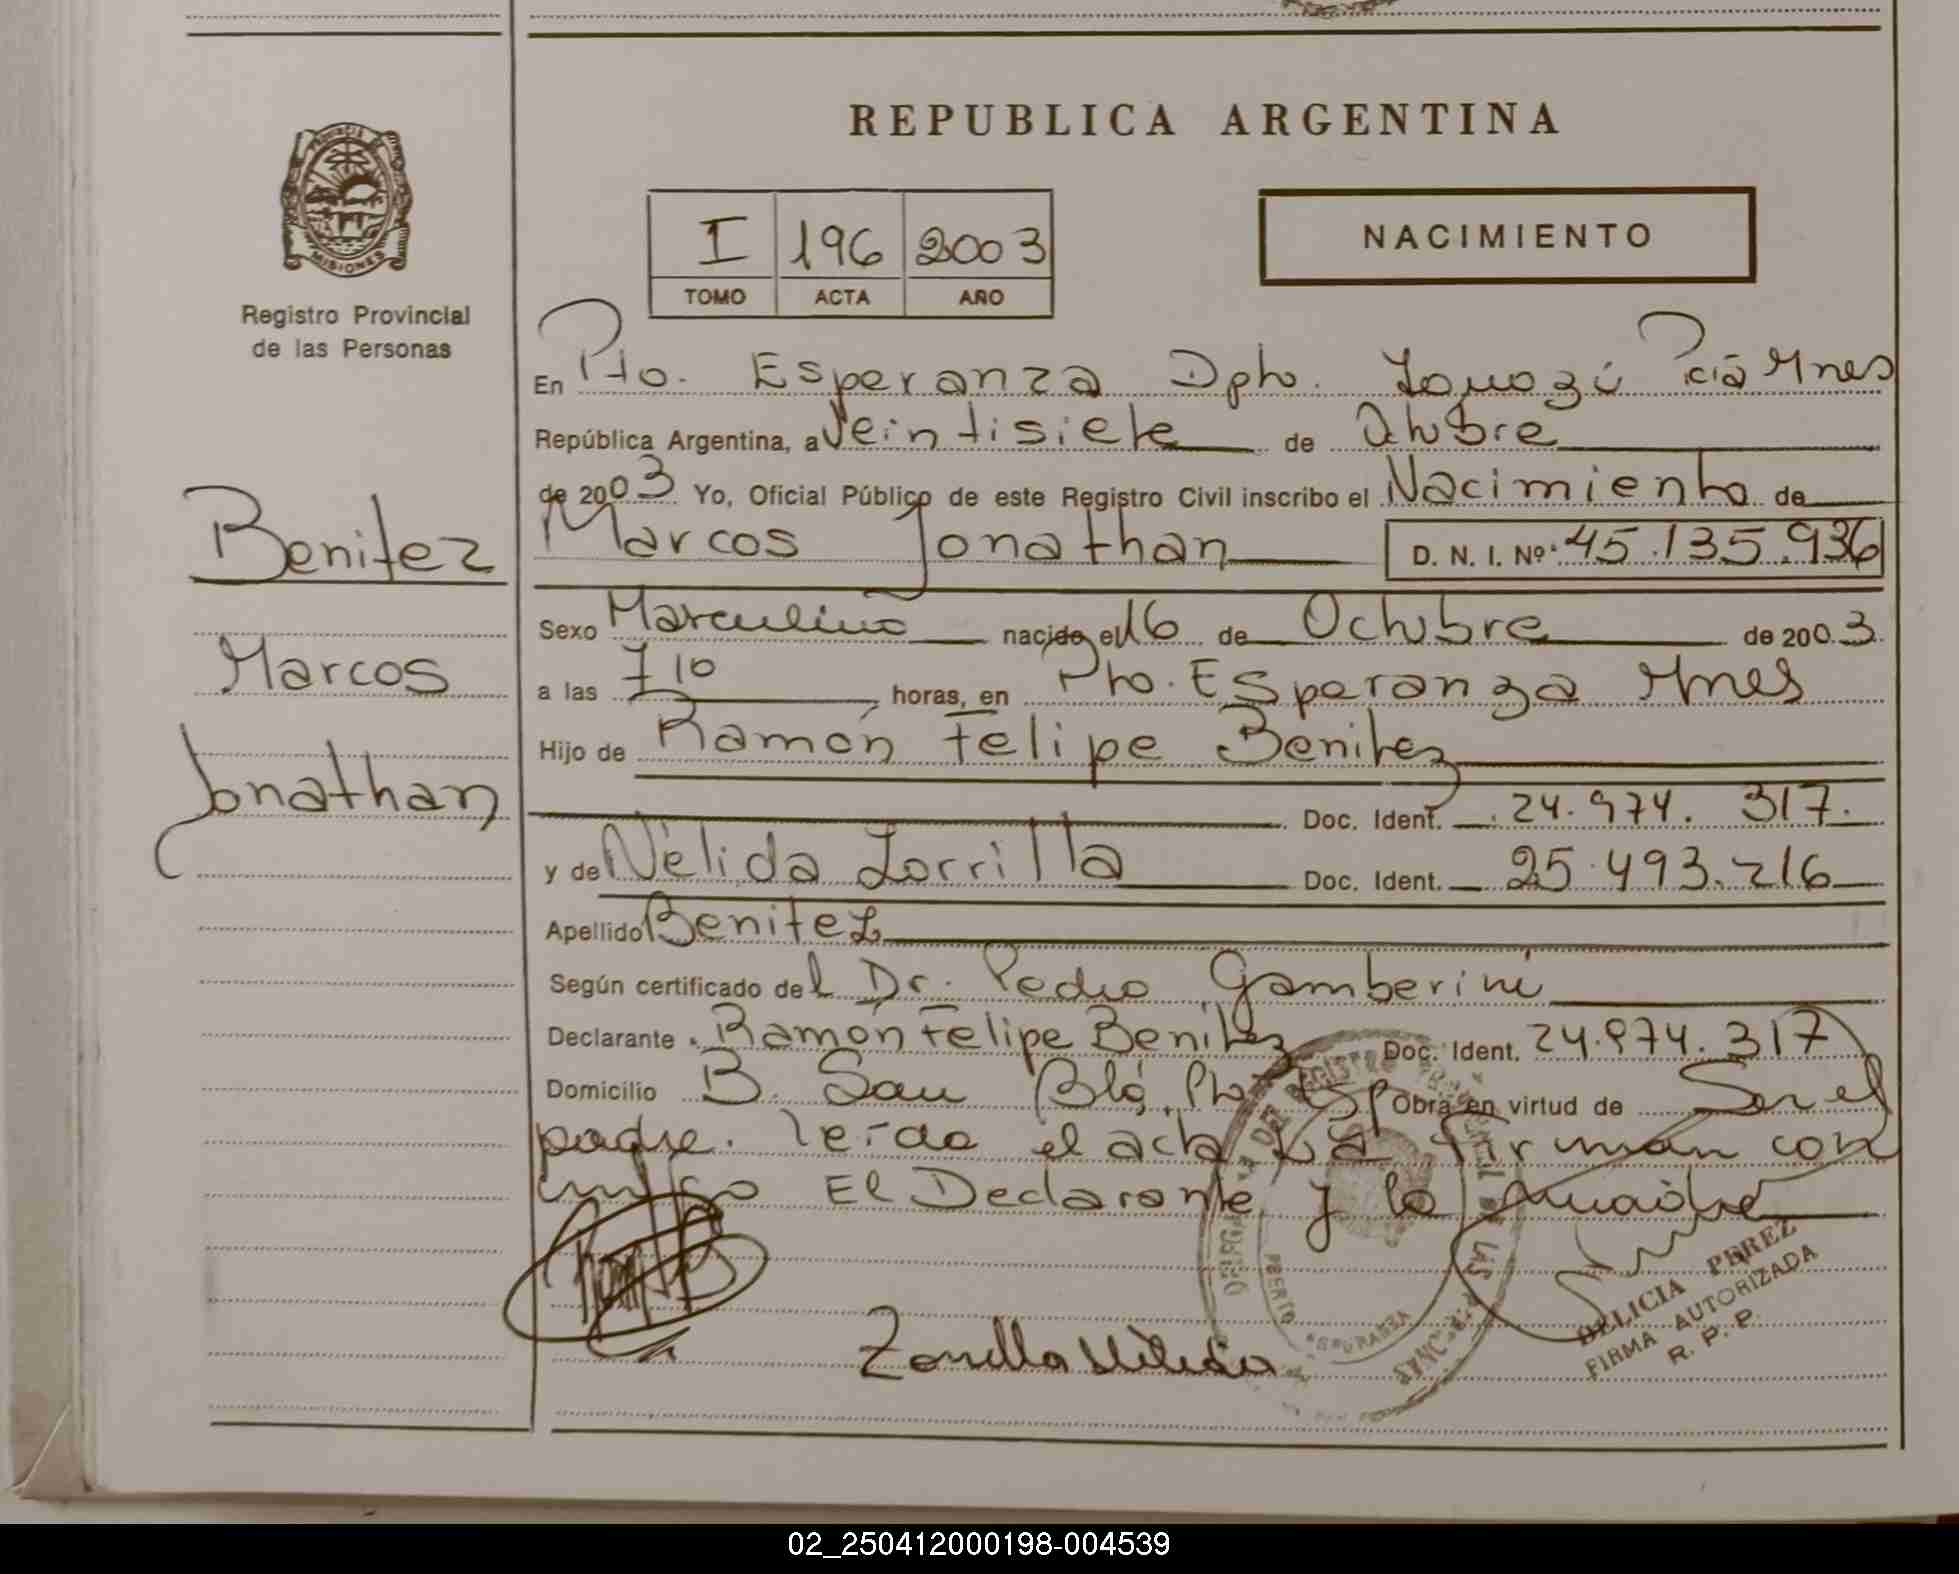 REPUBLICA ARGENTINA
PROVINCIA
MISIONES
Registro Provincial
de las Personas
I 196 2003
TOMO ACTA AÑO
NACIMIENTO
En Pto. Esperanza Dpto. Iguazú Pcia Mnes
República Argentina, a Veintisiete de Octubre
de 2003 Yo, Oficial Público de este Registro Civil inscribo el Nacimiento de
Marcos Jonathan D. N. I. Nº 45.135.936
Benitez
Marcos
Jonathan
Sexo Masculino nacido el 16 de Octubre de 2003
a las 7 10 horas, en Pto. Esperanza Mnes
Hijo de Ramón Felipe Benitez
Doc. Ident. 24.974.317.
y de Nélida Zorrilla Doc. Ident. 25.493.216
Apellido Benitez
Según certificado del Dr. Pedro Gamberini
Declarante Ramón Felipe Benitez Doc. Ident. 24.974.317
Domicilio B. San Pto Esp Obra en virtud de Ser el
padre. leida el acta La firman con
migo El Declarante y la madre
Zorrilla Nelida
DELICIA PEREZ
FIRMA AUTORIZADA
R. P. P.
02_250412000198-004539